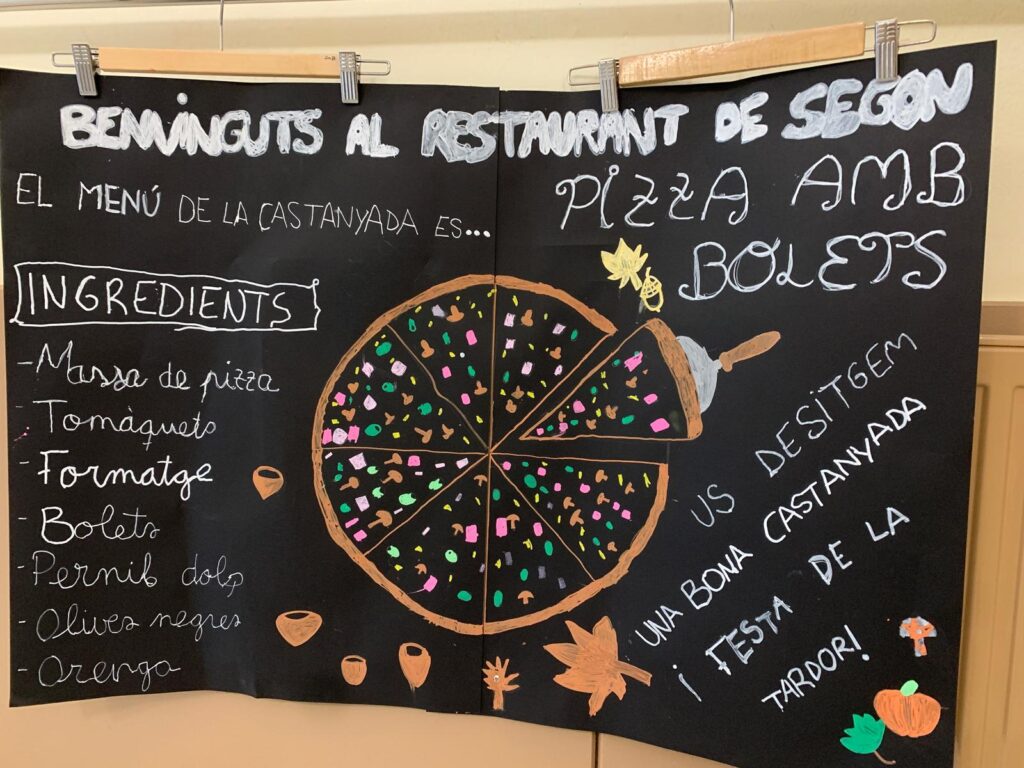 BENVINGUTS AL RESTAURANT DE SEGON
EL MENÚ DE LA CASTANYADA ES...
PIZZA AMB
BOLETS
INGREDIENTS
- Massa de pizza
- Tomàquets
- Formatge
- Bolets
- Pernil dolç
- Olives negres
- Orenga
US DESITGEM
UNA BONA CASTANYADA
i FESTA DE LA
TARDOR!